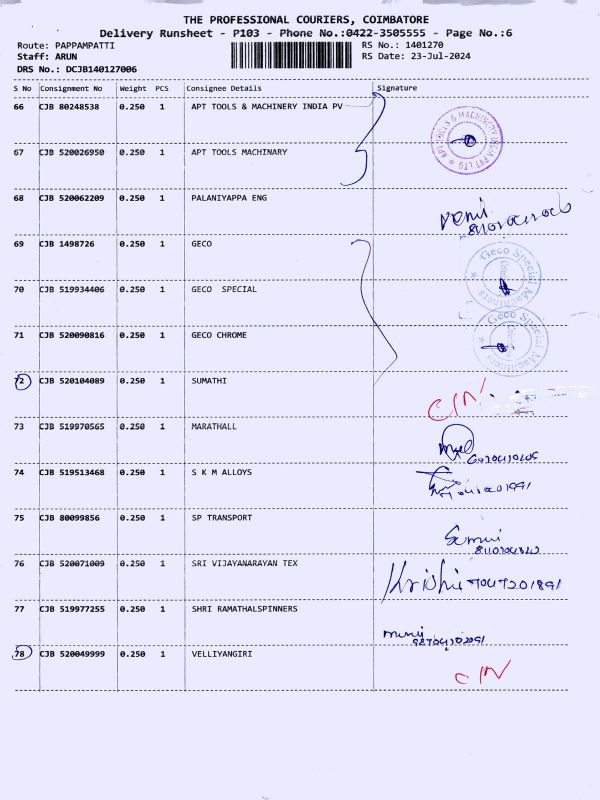 THE PROFESSIONAL COURIERS, COIMBATORE
Delivery Runsheet - P103 - Phone No.:0422-3505555 - Page No.:6
Route: PAPPAMPATTI RS No.: 1401270
Staff: ARUN RS Date: 23-Jul-2024
DRS No.: DCJB140127006
S No Consignment No Weight PCS Consignee Details Signature
66 CJB 80248538 0.250 1 APT TOOLS & MACHINERY INDIA PV
APT TOOLS & MACHINERY INDIA PVT LTD
67 CJB 520026950 0.250 1 APT TOOLS MACHINARY
68 CJB 520062209 0.250 1 PALANIYAPPA ENG
69 CJB 1498726 0.250 1 GECO
Geco Special Machiners
70 CJB 519934406 0.250 1 GECO SPECIAL
71 CJB 520090816 0.250 1 GECO CHROME
Geco Special Machiners
72 CJB 520104089 0.250 1 SUMATHI
73 CJB 519970565 0.250 1 MARATHALL
74 CJB 519513468 0.250 1 S K M ALLOYS
75 CJB 80099856 0.250 1 SP TRANSPORT
76 CJB 520071009 0.250 1 SRI VIJAYANARAYAN TEX
77 CJB 519977255 0.250 1 SHRI RAMATHALSPINNERS
78 CJB 520049999 0.250 1 VELLIYANGIRI